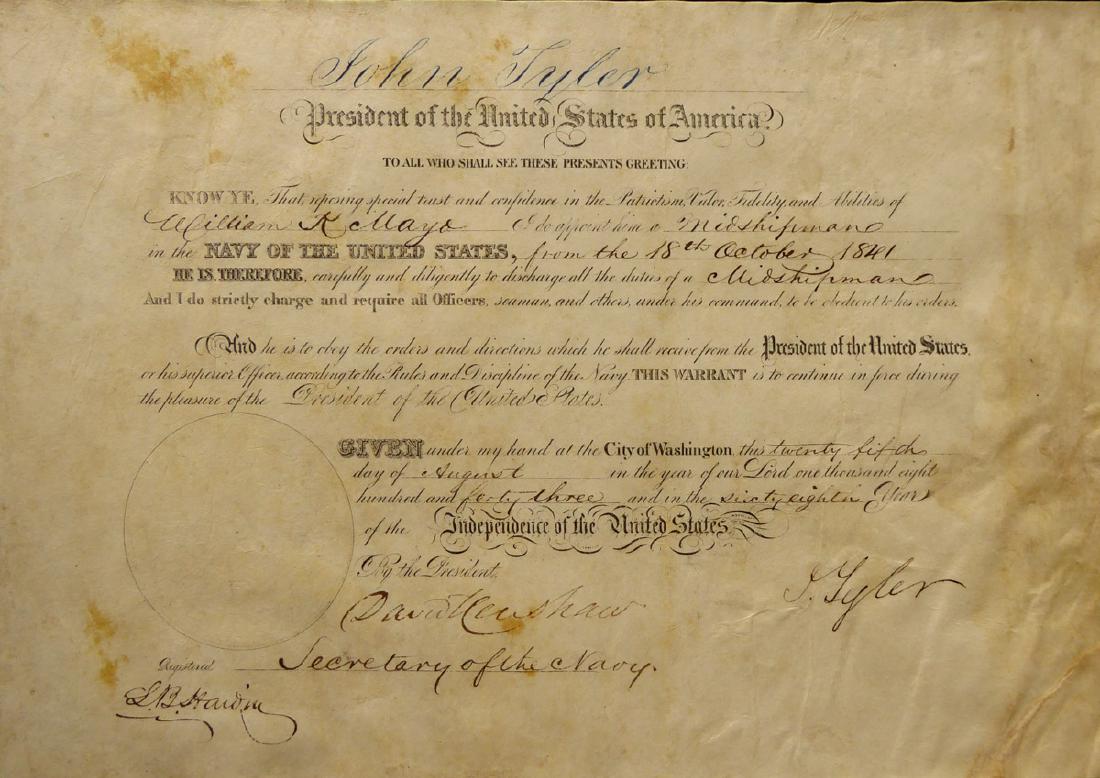 John Tyler
President of the United States of America.
TO ALL WHO SHALL SEE THESE PRESENTS GREETING:
KNOW YE, That reposing special trust and confidence in the Patriotism, Valor, Fidelity, and Abilities of
William K Mayo I do appoint him a Midshipman
in the NAVY OF THE UNITED STATES, from the 18th October 1841
HE IS, THEREFORE, carefully and diligently to discharge all the duties of a Midshipman
And I do strictly charge and require all Officers, seaman, and others, under his command, to be obedient to his orders.
And he is to obey the orders and directions which he shall receive from the President of the United States,
or his superior Officer, according to the Rules and Discipline of the Navy. THIS WARRANT is to continue in force during
the pleasure of the President of the United States.
GIVEN under my hand at the City of Washington, this twenty fifth
day of August in the year of our Lord one thousand eight
hundred and forty three and in the sixty eighth Year
of the Independence of the United States.
By the President,
J. Tyler
David Henshaw
Secretary of the Navy.
Registered